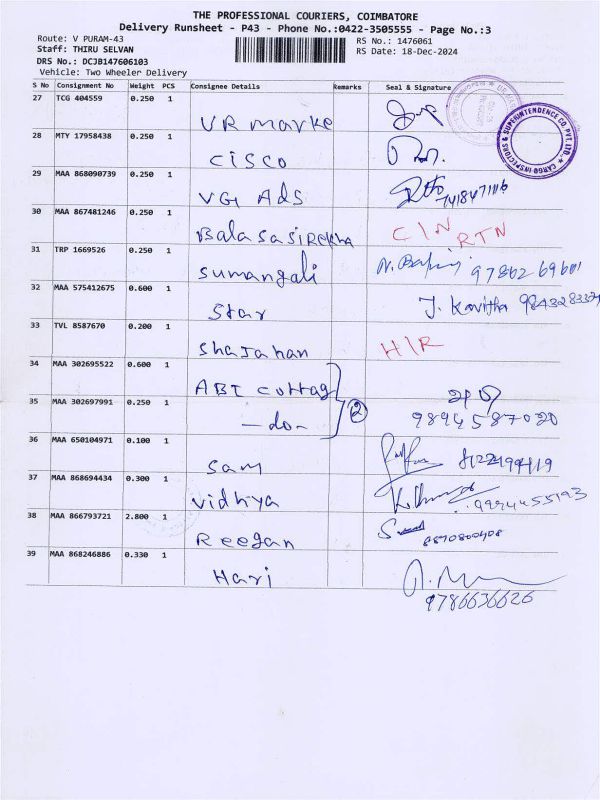 THE PROFESSIONAL COURIERS, COIMBATORE
Delivery Runsheet - P43 - Phone No.:0422-3505555 - Page No.:3
Route: V PURAM-43
Staff: THIRU SELVAN
RS No.: 1476061
RS Date: 18-Dec-2024
DRS No.: DCJB147606103
Vehicle: Two Wheeler Delivery
S No Consignment No Weight PCS Consignee Details Remarks Seal & Signature
27 TCG 404559 0.250 1
VR marke
28 MTY 17958438 0.250 1
CISCO
29 MAA 868090739 0.250 1
VGI Ads
30 MAA 867481246 0.250 1
Balasasirekha C/N RTN
31 TRP 1669526 0.250 1
sumangali
32 MAA 575412675 0.600 1
Star J. Kavitha
33 TVL 8587670 0.200 1
Shajahan H/R
34 MAA 302695522 0.600 1
ABT cottag
35 MAA 302697991 0.250 1
-do- 2 9894587020
36 MAA 650104971 0.100 1
Sam
37 MAA 868694434 0.300 1
Vidhya 9994455193
38 MAA 866793721 2.800 1
Reegan
39 MAA 868246886 0.330 1
Hari
9786636626
CARGO INSPECTORS & SUPERINTENDENCE CO. PVT. LTD.